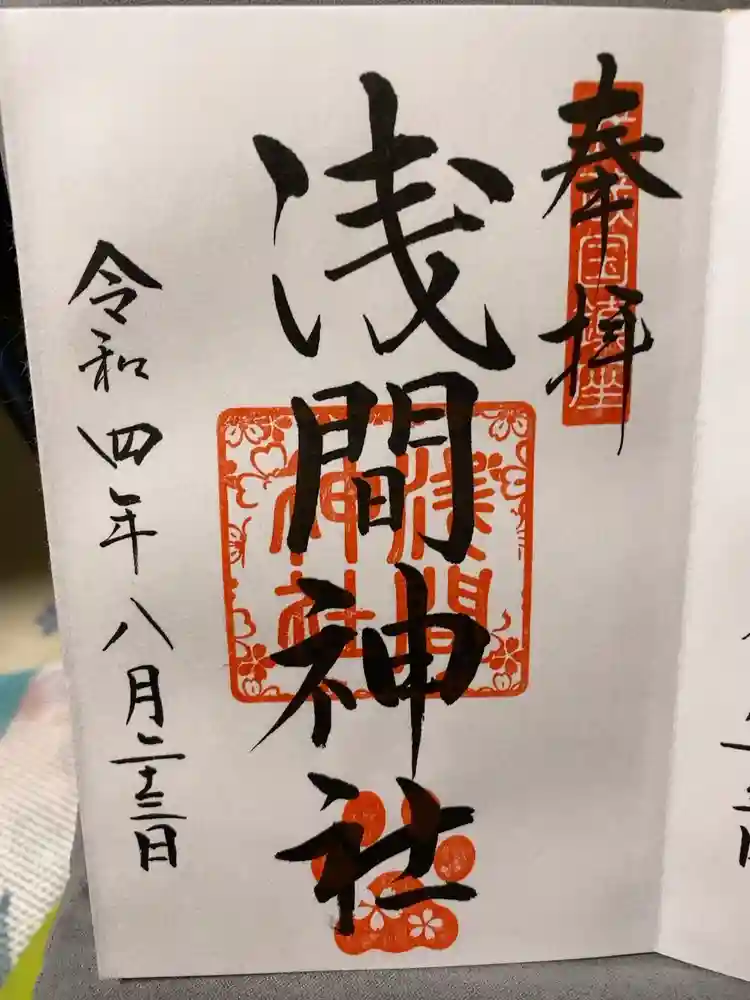 奉拝
武蔵国鎮座
浅間神社
浅間神社
令和四年八月二十三日